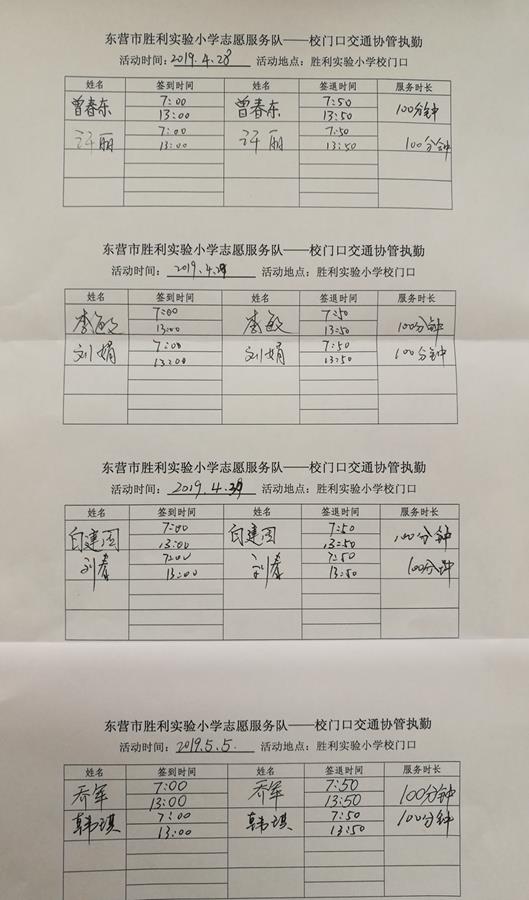 东营市胜利实验小学志愿服务队——校门口交通协管执勤
活动时间：2019.4.28 活动地点：胜利实验小学校门口
姓名 签到时间 签退时间 服务时长
曾春东 7:00 曾春东 7:50 100分钟
13:00 13:50
许丽 7:00 许丽 7:50 100分钟
13:00 13:50
东营市胜利实验小学志愿服务队——校门口交通协管执勤
活动时间：2019.4. 活动地点：胜利实验小学校门口
姓名 签到时间 签退时间 服务时长
李敏 7:00 李敏 7:50 100分钟
13:00 13:50
刘娟 7:00 刘娟 7:50 100分钟
13:00 13:50
东营市胜利实验小学志愿服务队——校门口交通协管执勤
活动时间：2019.4. 活动地点：胜利实验小学校门口
姓名 签到时间 签退时间 服务时长
白建国 7:00 白建国 7:50 100分钟
13:00 13:50
7:00 7:50 100分钟
13:00 13:50
东营市胜利实验小学志愿服务队——校门口交通协管执勤
活动时间：2019.5.5. 活动地点：胜利实验小学校门口
姓名 签到时间 签退时间 服务时长
乔军 7:00 乔军 7:50 100分钟
13:00 13:50
韩琪 7:00 韩琪 7:50 100分钟
13:00 13:50